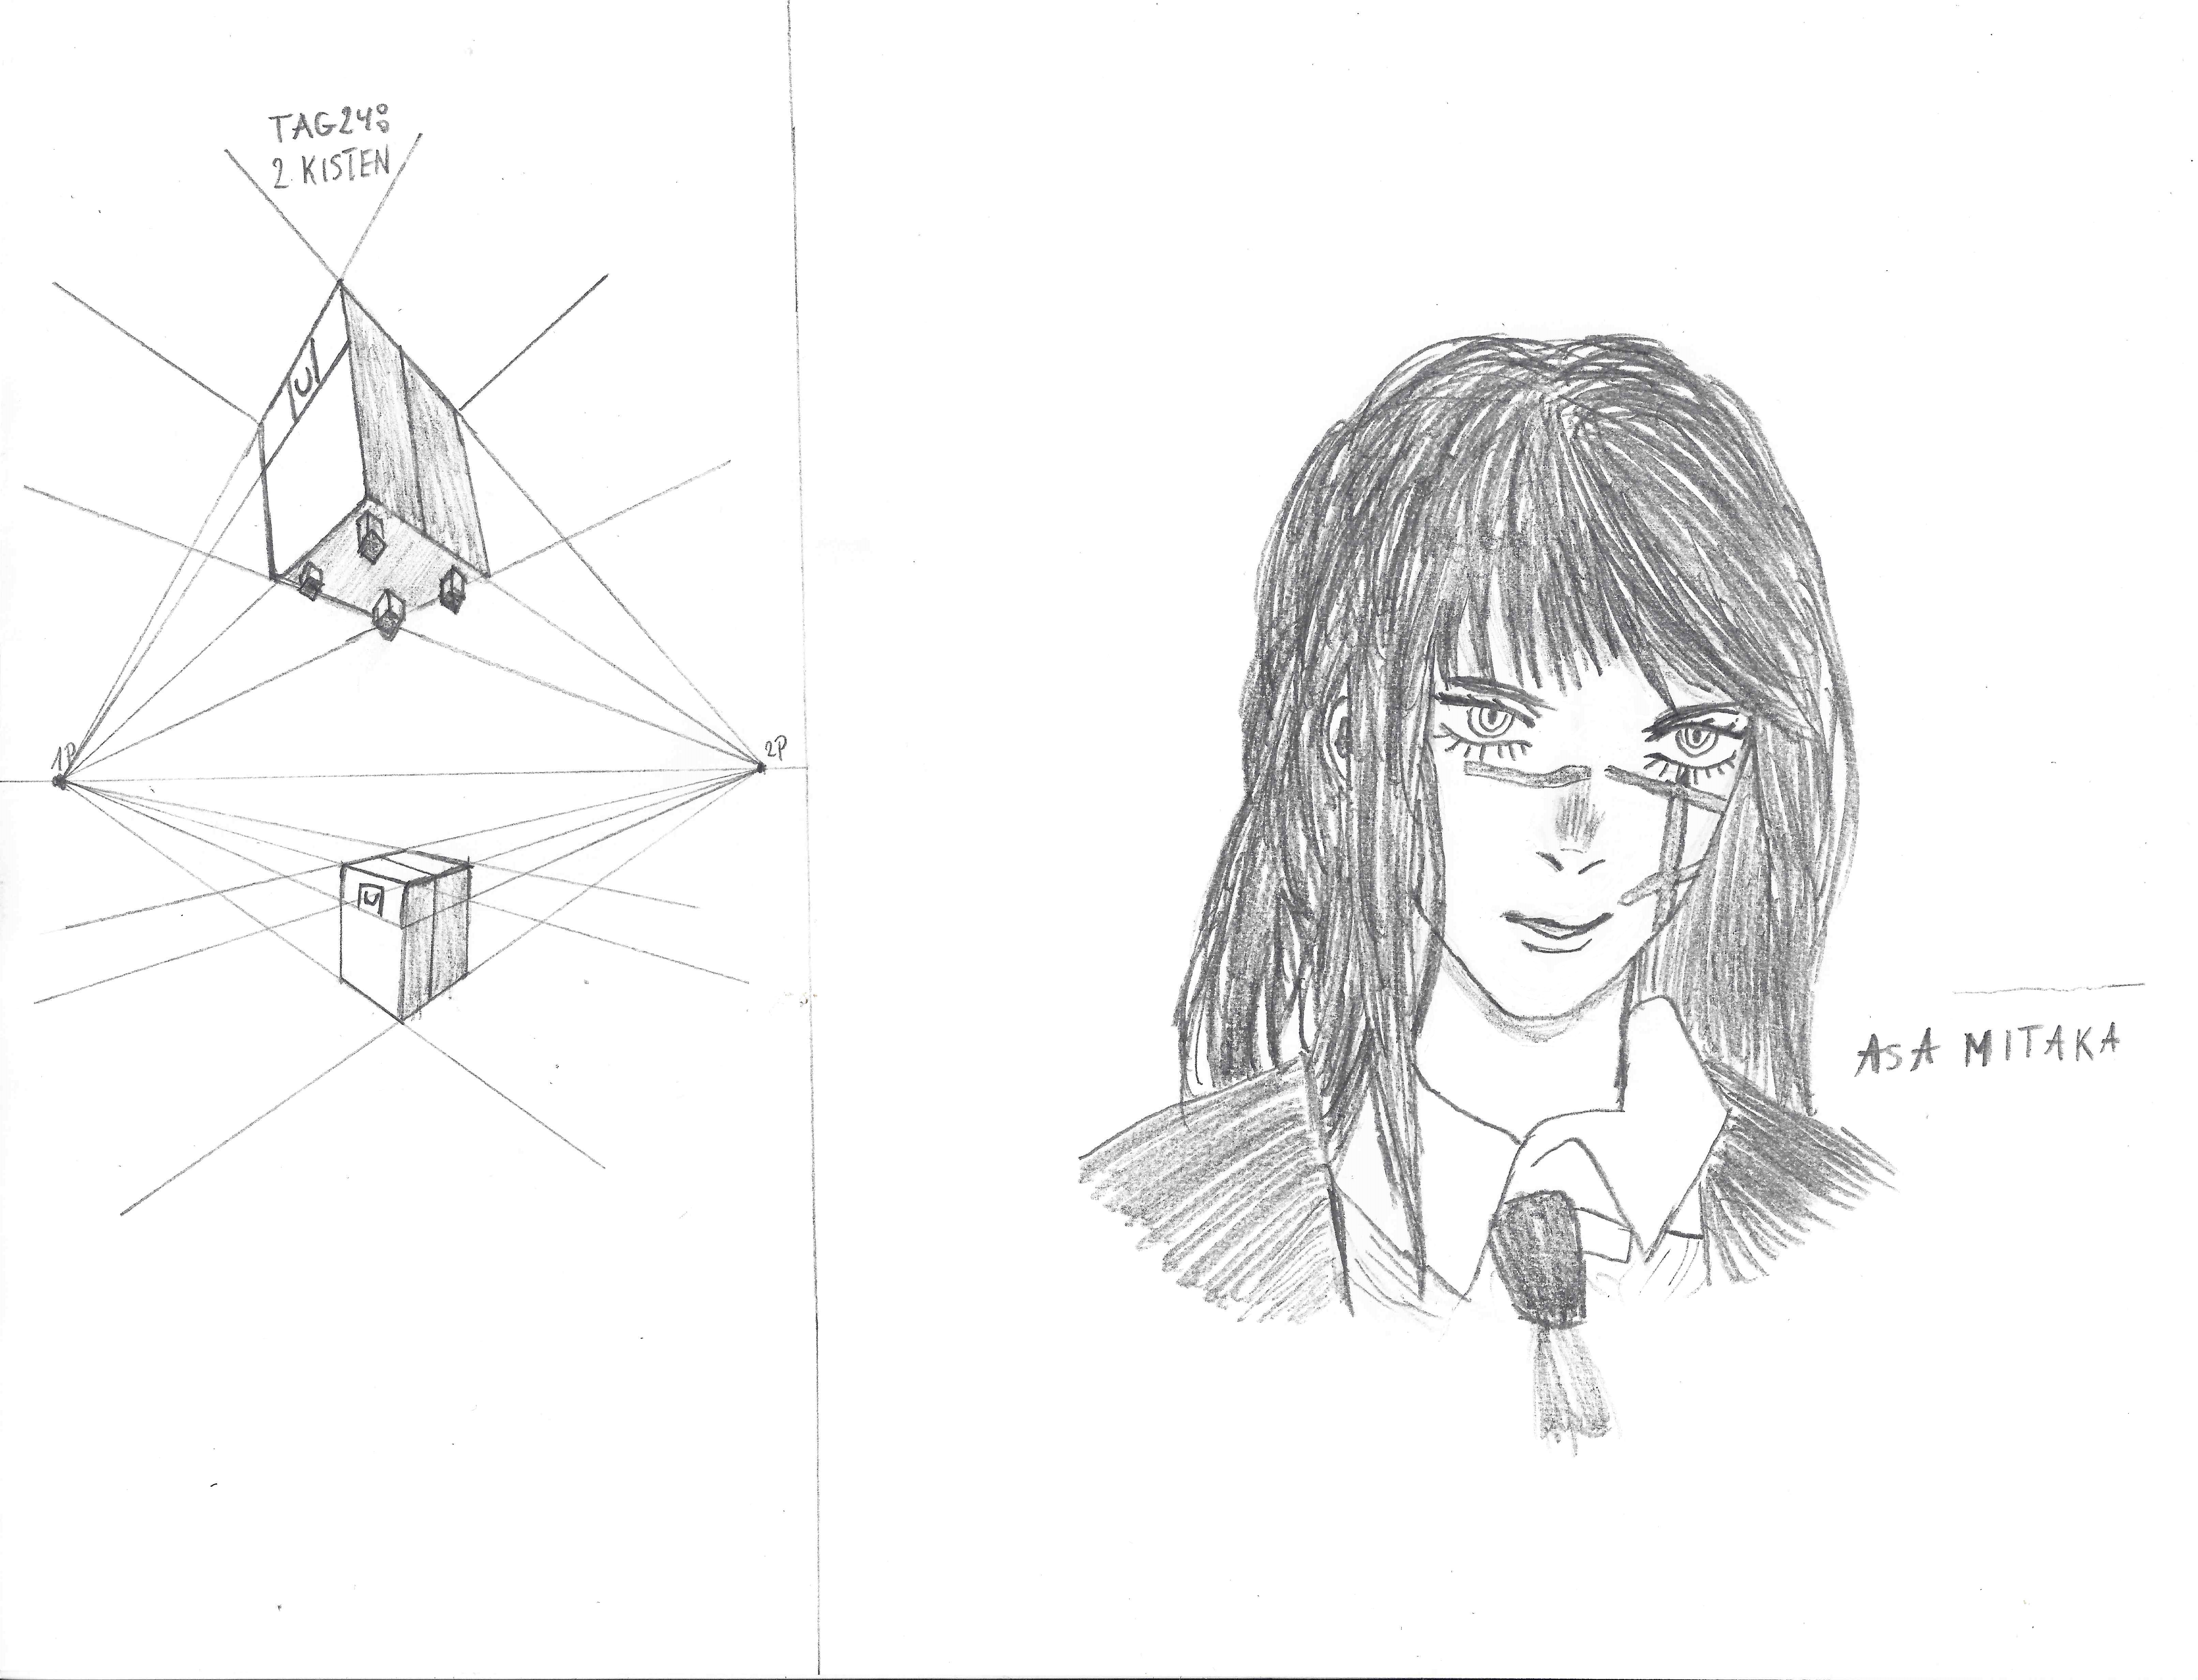 TAG24:
2 KISTEN
U
1P
2P
U
ASA MITAKA